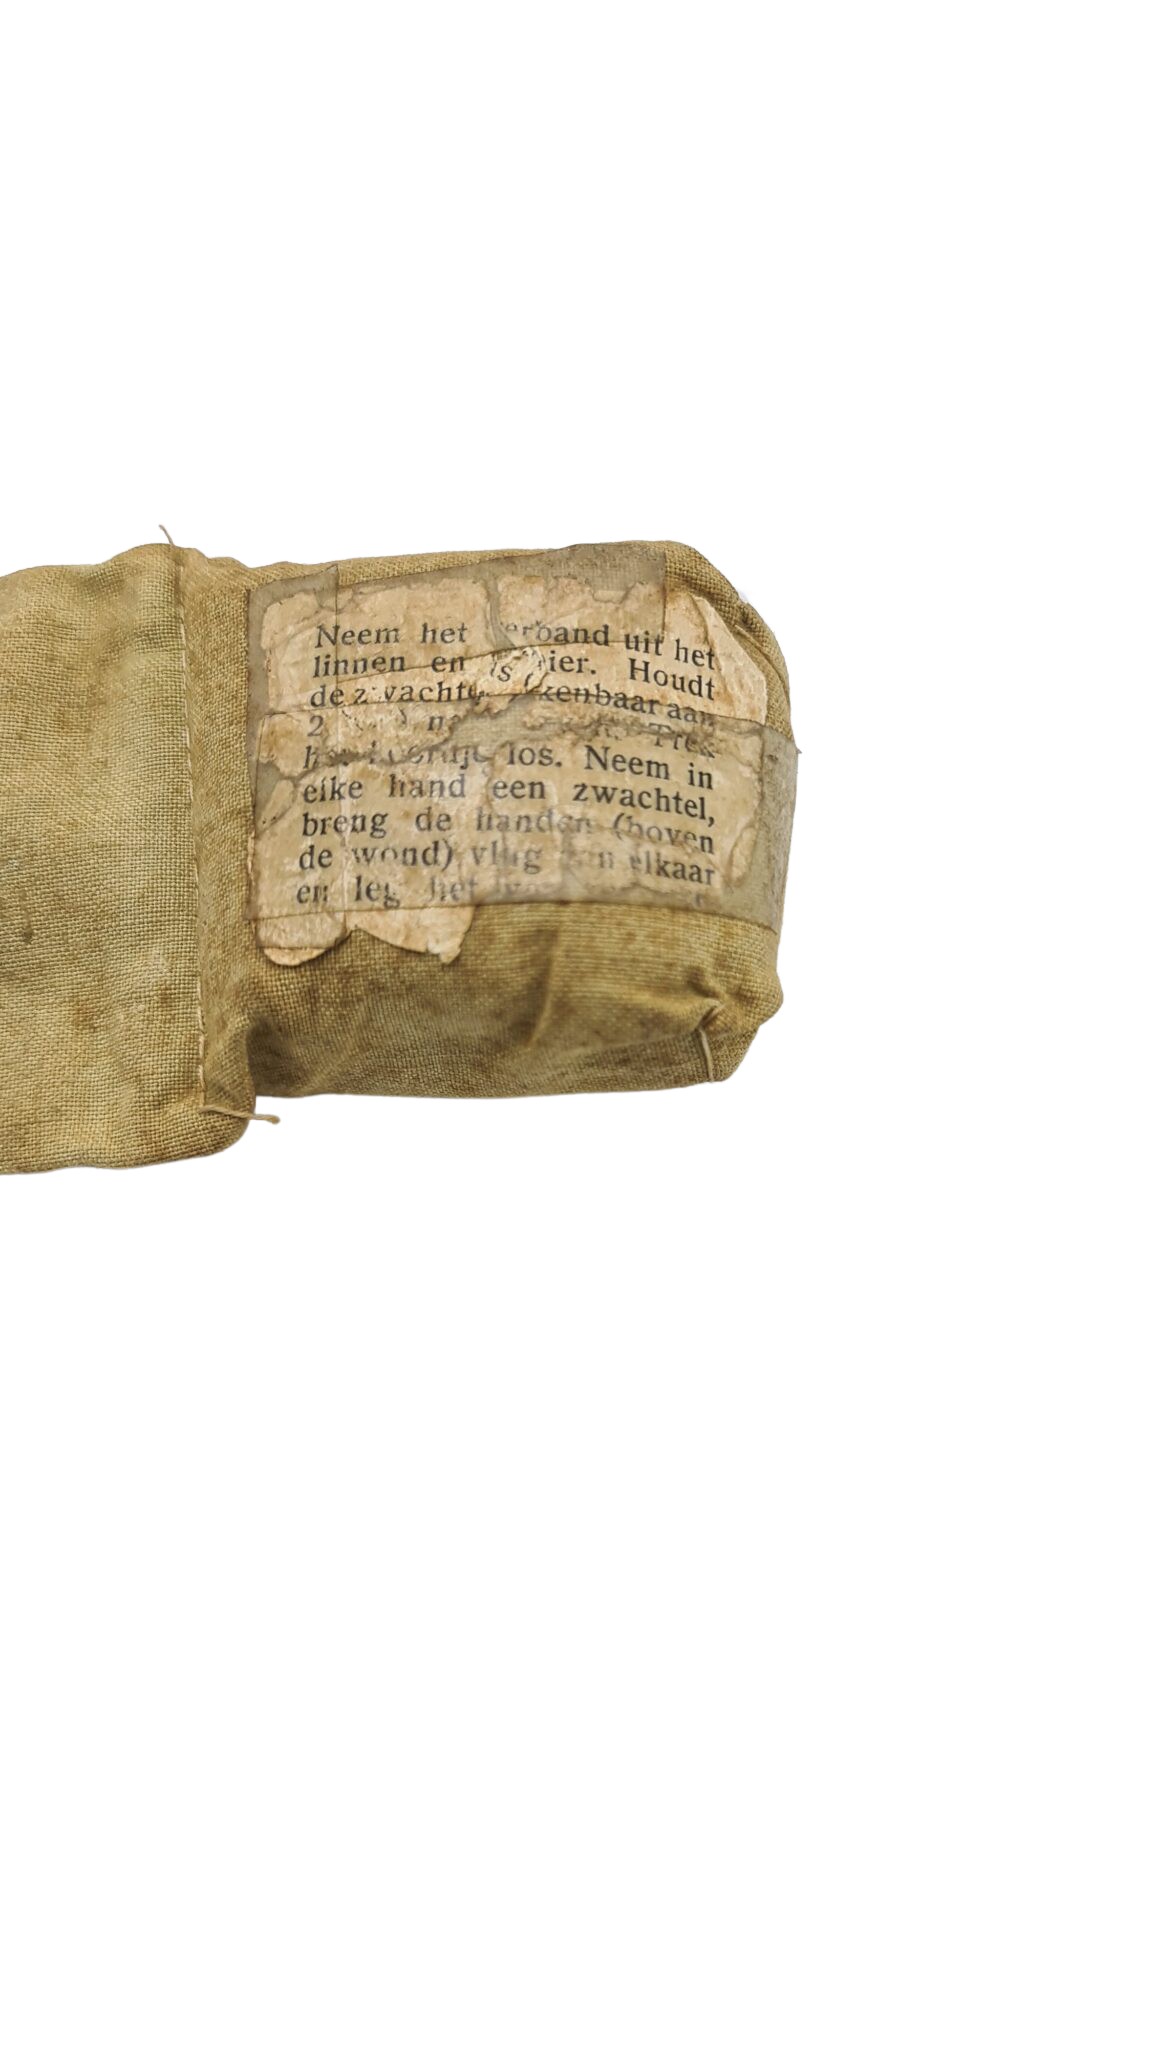 Neem het verband uit het
linnen en ier. Houdt
de zwachtel kenbaar aan
2 Trek
los. Neem in
elke hand een zwachtel,
breng de handen (boven
de wond) vlug elkaar
en leg het